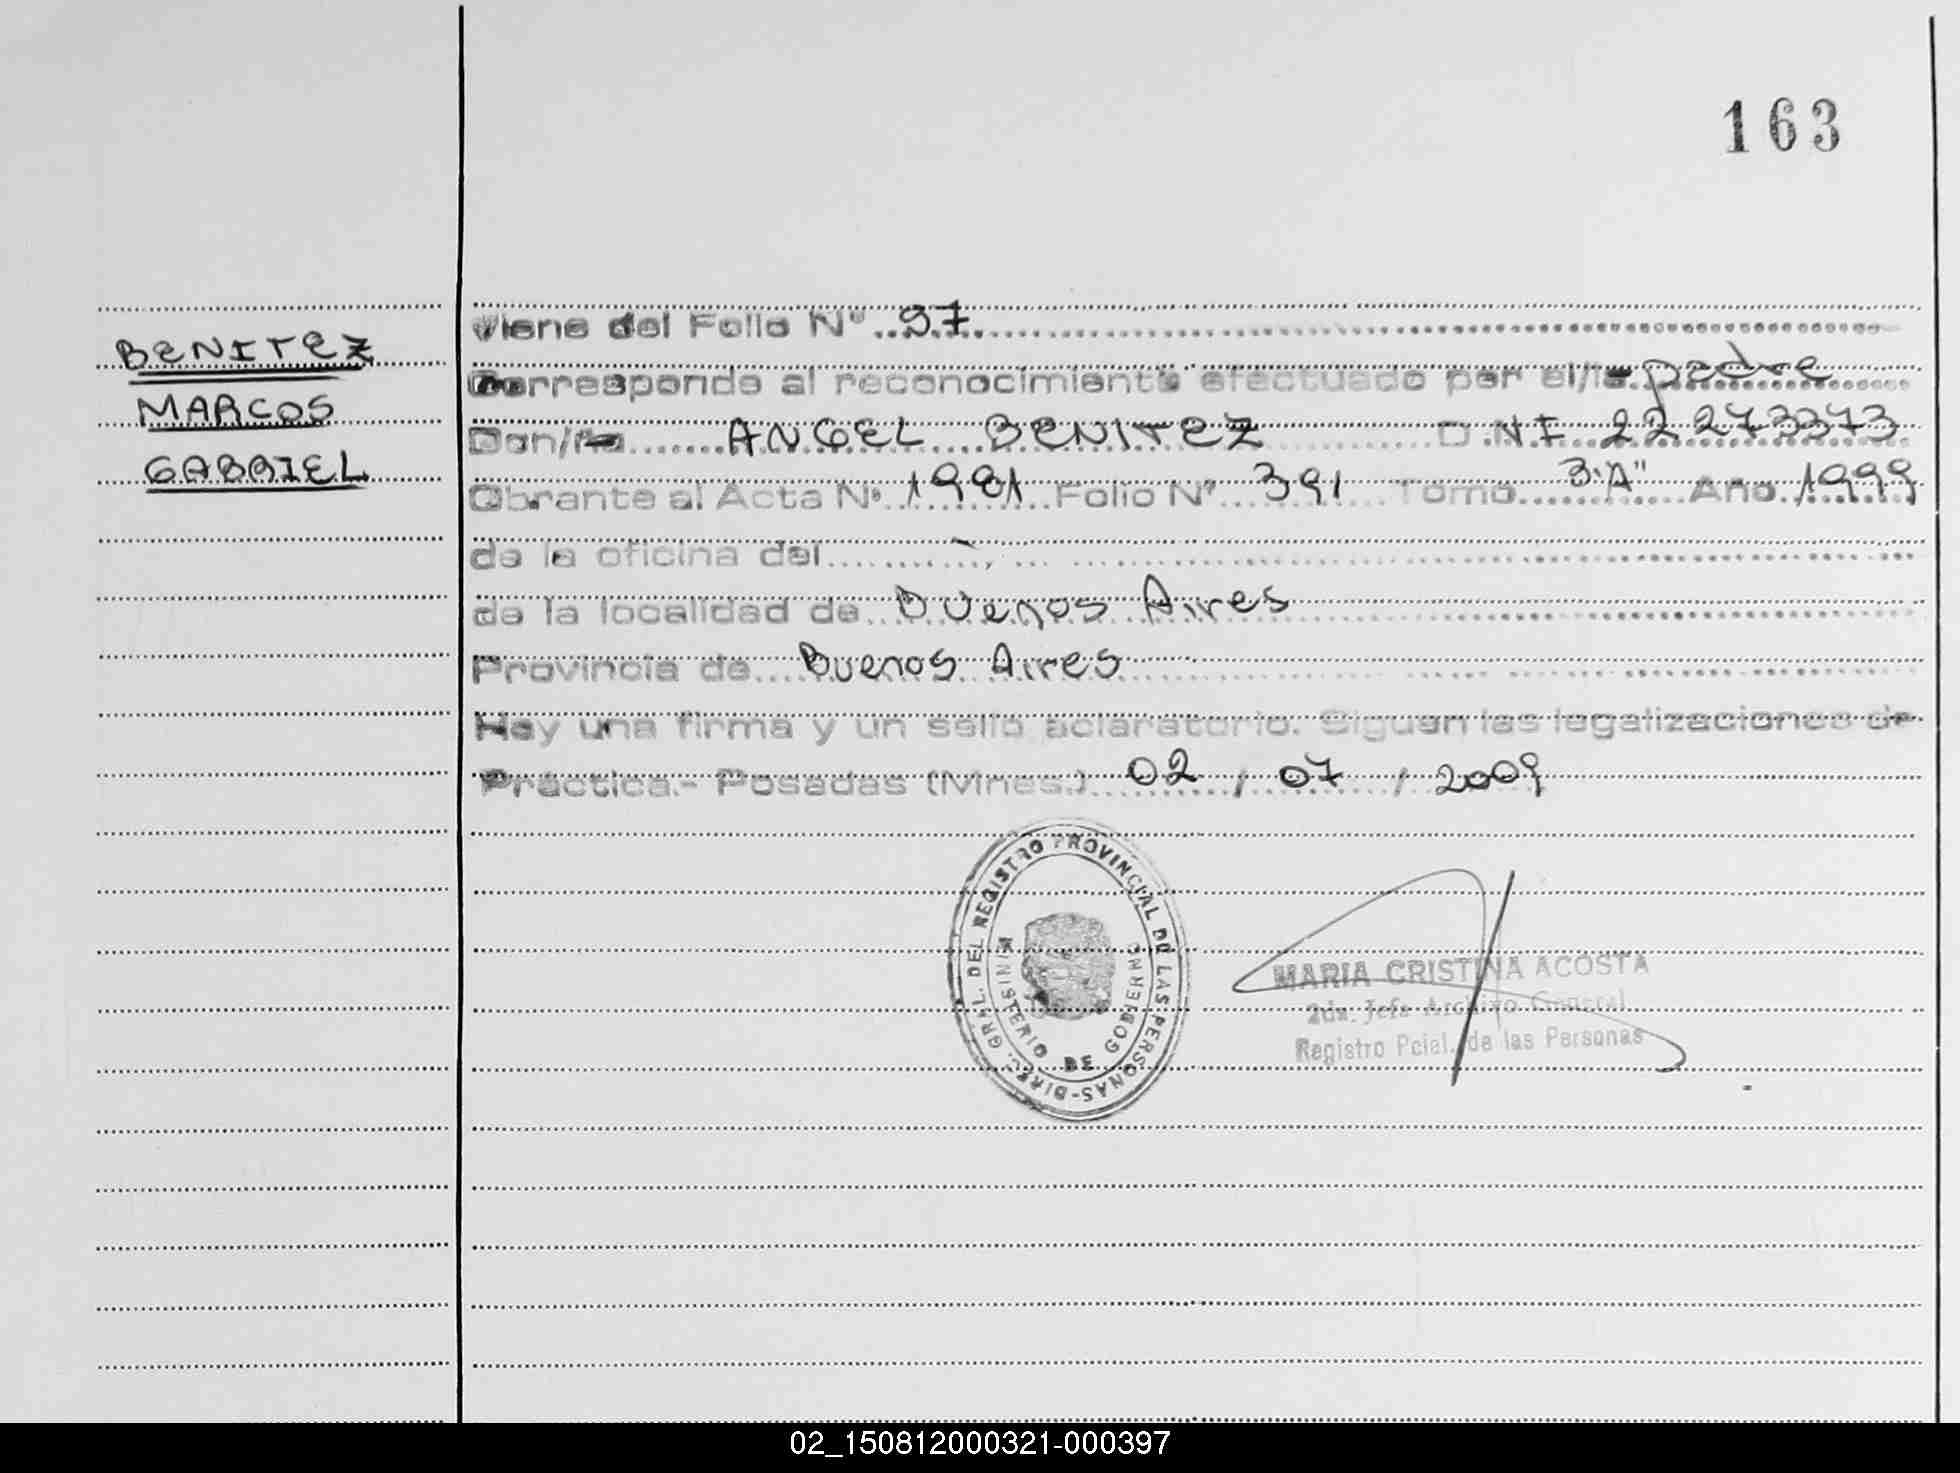 163
BENITEZ
MARCOS
GABRIEL
Viene del Folio Nº 97
Corresponde al reconocimiento efectuado por el/la padre
Don/ña ANGEL BENITEZ D.N.I. 22 273373
Obrante al Acta Nº 1981 Folio Nº 391 Tomo 3"A" Año 1999
de la oficina del
de la localidad de Buenos Aires
Provincia de Buenos Aires
Hay una firma y un sello aclaratorio. Siguen las legalizaciones de
Práctica.- Posadas (Mnes.) 02 / 07 / 2009
DIREC. GRAL. DEL REGISTRO PROVINCIAL DE LAS PERSONAS-
MINISTERIO DE GOBIERNO
MARIA CRISTINA ACOSTA
2da. Jefa Archivo General
Registro Pcial. de las Personas
02_150812000321-000397